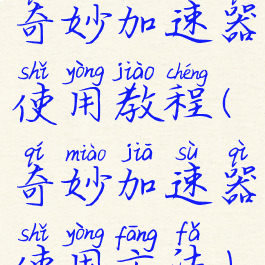 奇妙加速器
shǐ yòng jiào chéng
使用教程(
qí miào jiā sù qì
奇妙加速器
shǐ yòng fāng fǎ
使用方法)